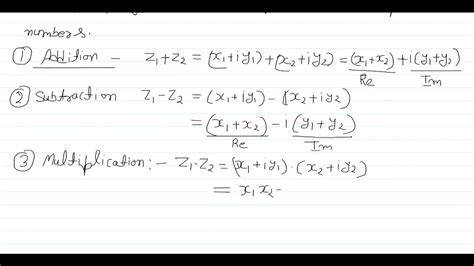 numbers.
① Addition – Z₁+Z₂ = (x₁+iy₁)+(x₂+iy₂) = (x₁+x₂)+i(y₁+y₂)
Re Im
② Subtraction Z₁-Z₂ = (x₁+iy₁)-(x₂+iy₂)
= (x₁+x₂)-i(y₁+y₂)
Re Im
③ Multiplication:- Z₁.Z₂ = (x₁+iy₁).(x₂+iy₂)
= x₁x₂-